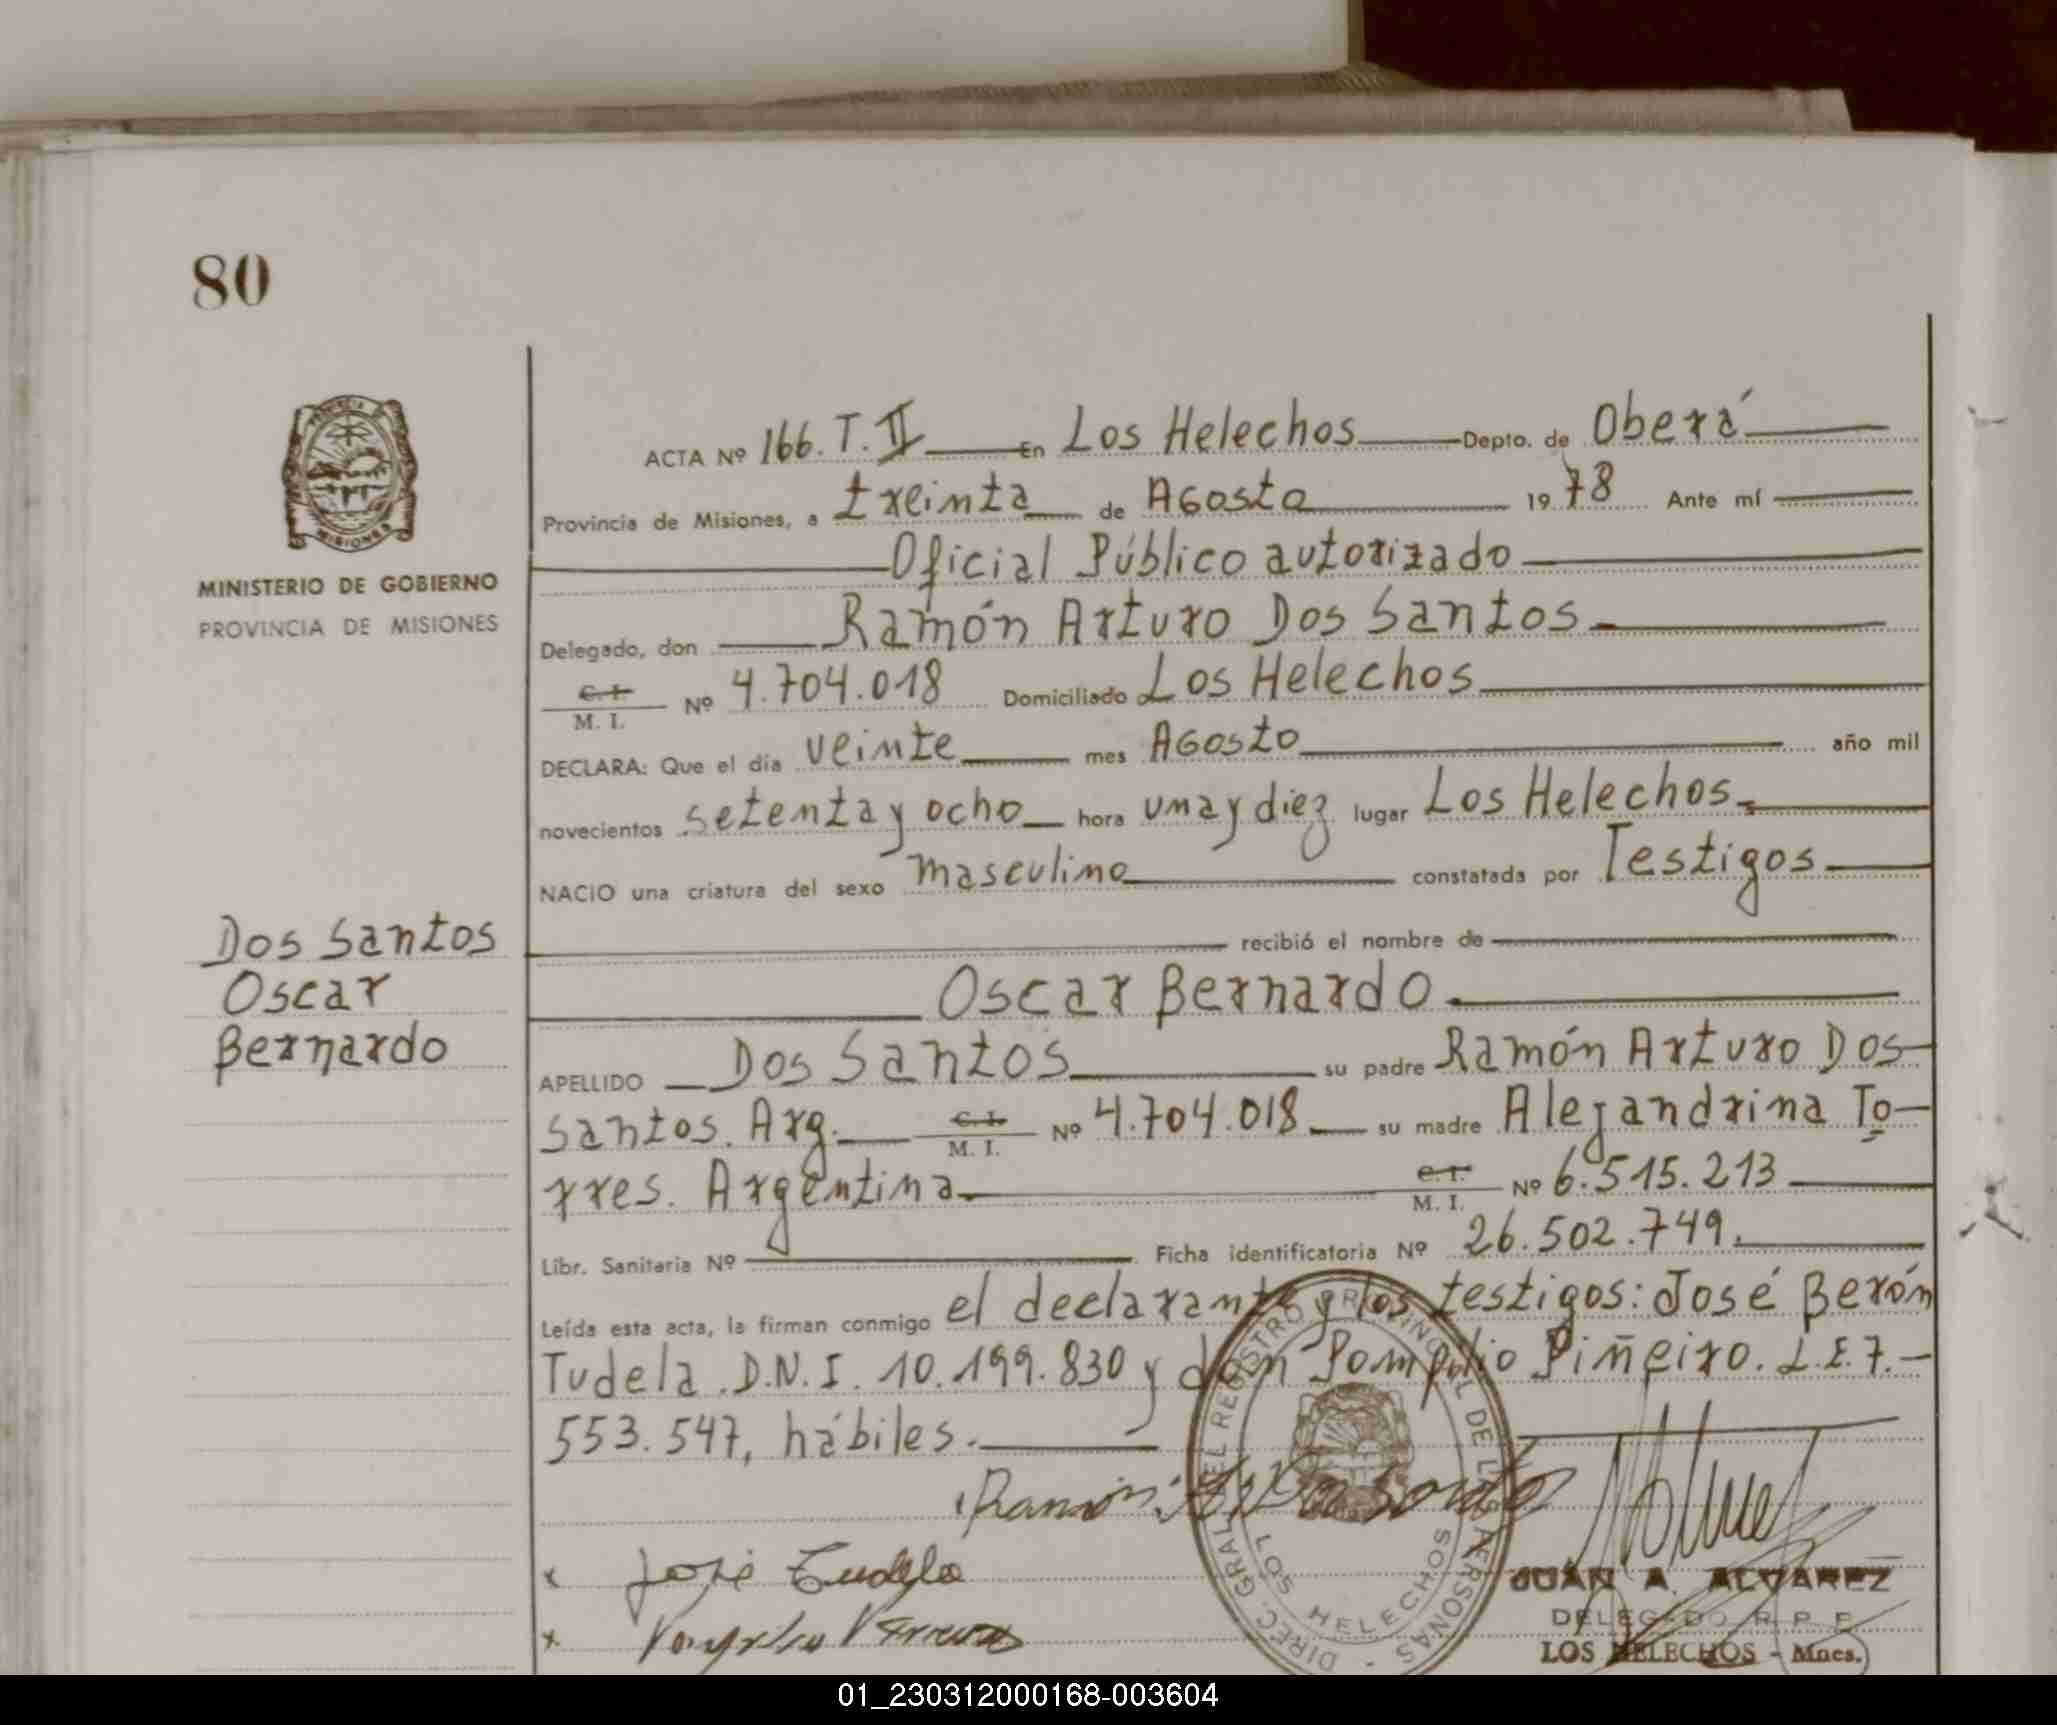 80
PROVINCIA DE
MISIONES
MINISTERIO DE GOBIERNO
PROVINCIA DE MISIONES
ACTA Nº 166. T. II En Los Helechos Depto. de Oberá
Provincia de Misiones, a treinta de Agosto 1978 Ante mí
Oficial Público autorizado
Delegado, don Ramón Arturo Dos Santos
C. I.
M. I. Nº 4.704.018 Domiciliado Los Helechos
DECLARA: Que el día veinte mes Agosto año mil
novecientos setenta y ocho hora una y diez lugar Los Helechos
NACIO una criatura del sexo masculino constatada por Testigos
recibió el nombre de
Oscar Bernardo
Dos Santos
Oscar
Bernardo
APELLIDO Dos Santos su padre Ramón Arturo Dos
Santos. Arg. C. I. M. I. Nº 4.704.018 su madre Alejandrina To-
rres. Argentina C. I. M. I. Nº 6.515.213
Libr. Sanitaria Nº Ficha identificatoria Nº 26.502.749.
Leída esta acta, la firman conmigo el declarante y los testigos: José Berón
Tudela. D.N.I. 10.199.830 y don Pompilio Piñeiro. L.E. 7.-
553.547, hábiles.
DIREC. GRAL. DEL REGISTRO PROVINCIAL DE LAS PERSONAS
LOS HELECHOS
x José Tudela
x
JUAN A. ALVAREZ
DELEGADO R. P. P.
LOS HELECHOS - Mnes.
01_230312000168-003604